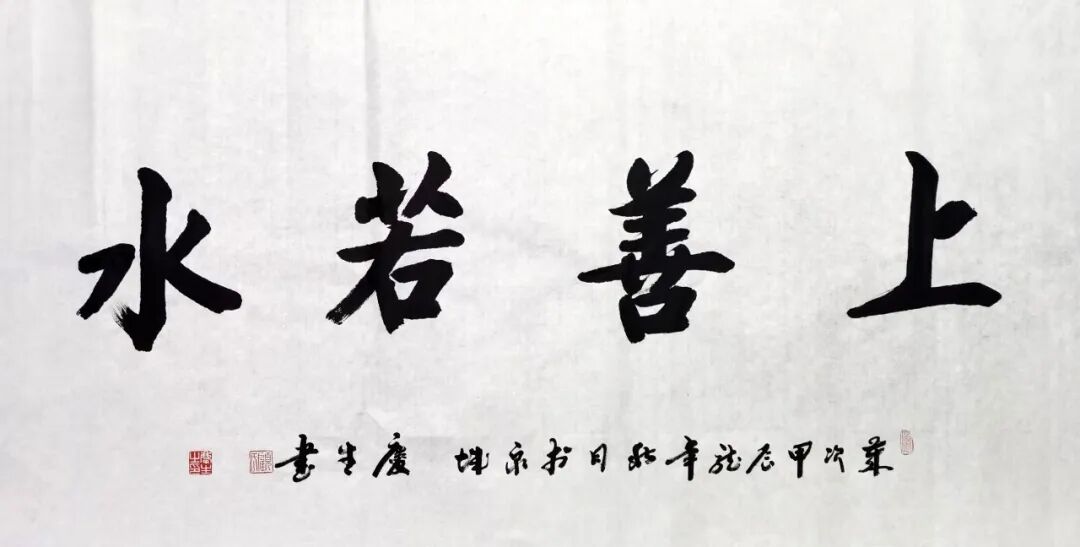 上善若水
岁次甲辰龙年秋日于泉城 庆生书